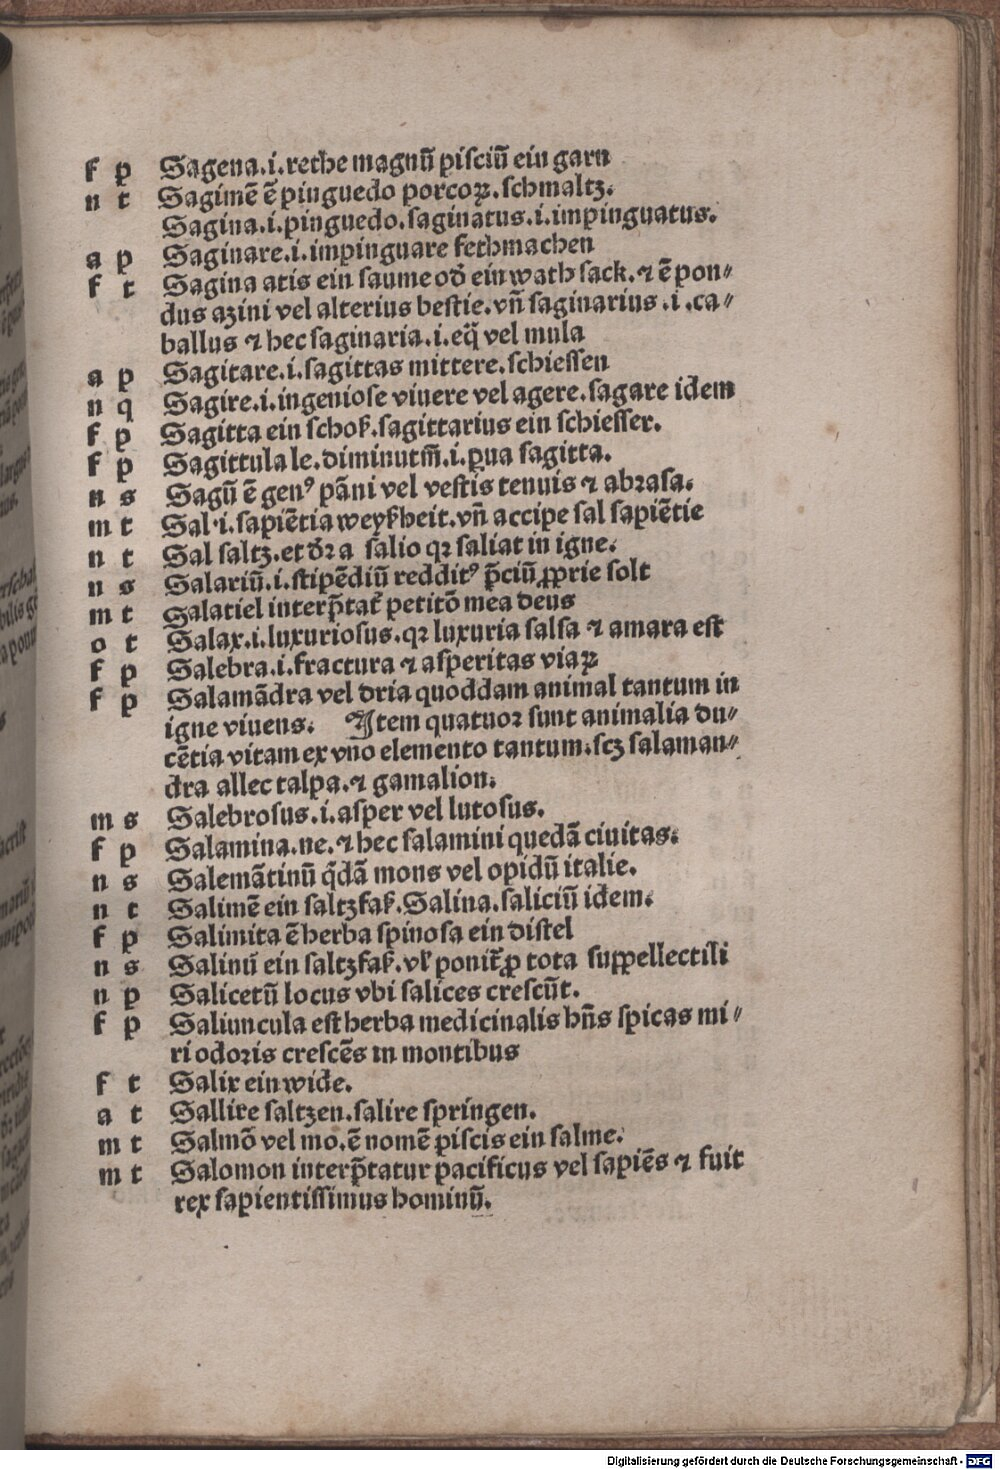 f p Sagena.i.rethe magnū pisciū ein garn
n t Sagimē ē pinguedo porcoꝝ.schmaltz.
Sagina.i.pinguedo.saginatus.i.impinguatus.
a p Saginare.i.impinguare fethmachen
f t Sagina atis ein saume od̄ ein wath sack.⁊ ē pon⸗
dus azini vel alterius bestie.vn̄ saginarius.i.ca⸗
ballus ⁊ hec saginaria.i.eq̄ vel mula
a p Sagitare.i.sagittas mittere.schiessen
n q Sagire.i.ingeniose viuere vel agere.sagare idem
f p Sagitta ein schoß.sagittarius ein schiesser.
f p Sagittula le.diminutm̄.i.ꝑua sagitta.
n s Sagū ē genꝰ pāni vel vestis tenuis ⁊ abrasa.
m t Sal.i.sapiētia weyßheit.vn̄ accipe sal sapiētie
n t Sal saltz.et dr̄ a salio qꝛ saliat in igne.
n s Salariū.i.stipēdiū redditꝰ p̄ciū ꝓprie solt
m t Salatiel interp̄tat᷑ petitō mea deus
o t Salax.i.luxuriosus.qꝛ luxuria salsa ⁊ amara est
f p Salebra.i.fractura ⁊ asperitas viaꝝ
f p Salamādra vel dria quoddam animal tantum in
igne viuens. Item quatuor sunt animalia du⸗
cētia vitam ex vno elemento tantum.scꝫ salaman⸗
dra allec talpa.⁊ gamalion.
m s Salebrosus.i.asper vel lutosus.
f p Salamina.ne.⁊ hec salamini quedā ciuitas.
n s Salemātinū q̄dā mons vel opidū italie.
n t Salimē ein saltzfaß.Salina.saliciū idem.
f p Salimita ē herba spinosa ein distel
n s Salinū ein saltzfaß.vl̓ ponit᷑ ꝓ tota suppellectili
n p Salicetū locus vbi salices crescūt.
f p Saliuncula est herba medicinalis hn̄s spicas mi⸗
ri odoris crescēs in montibus
f t Salix ein wide.
a t Sallire saltzen.salire springen.
m t Salmō vel mo.ē nomē piscis ein salme.
m t Salomon interp̄tatur pacificus vel sapiēs ⁊ fuit
rex sapientissimus hominū.
Digitalisierung gefördert durch die Deutsche Forschungsgemeinschaft - DFG